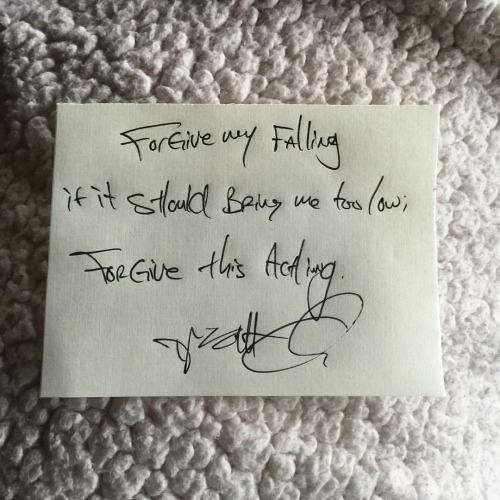 Forgive my Falling
if it should Bring me too low;
Forgive this Aching.